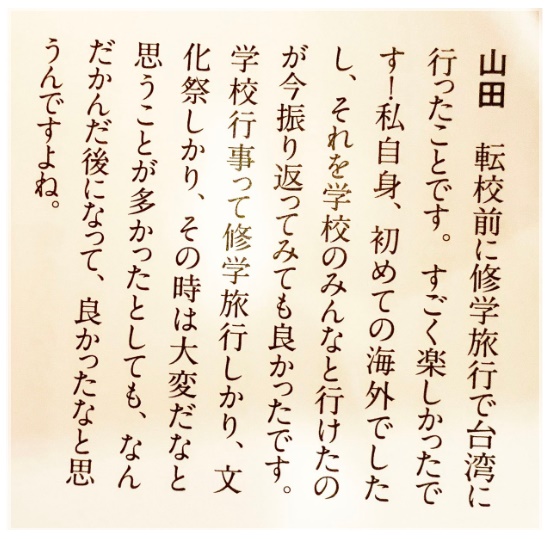 山田　転校前に修学旅行で台湾に
行ったことです。すごく楽しかったで
す！私自身、初めての海外でした
し、それを学校のみんなと行けたの
が今振り返ってみても良かったです。
学校行事って修学旅行しかり、文
化祭しかり、その時は大変だなと
思うことが多かったとしても、なん
だかんだ後になって、良かったなと思
うんですよね。